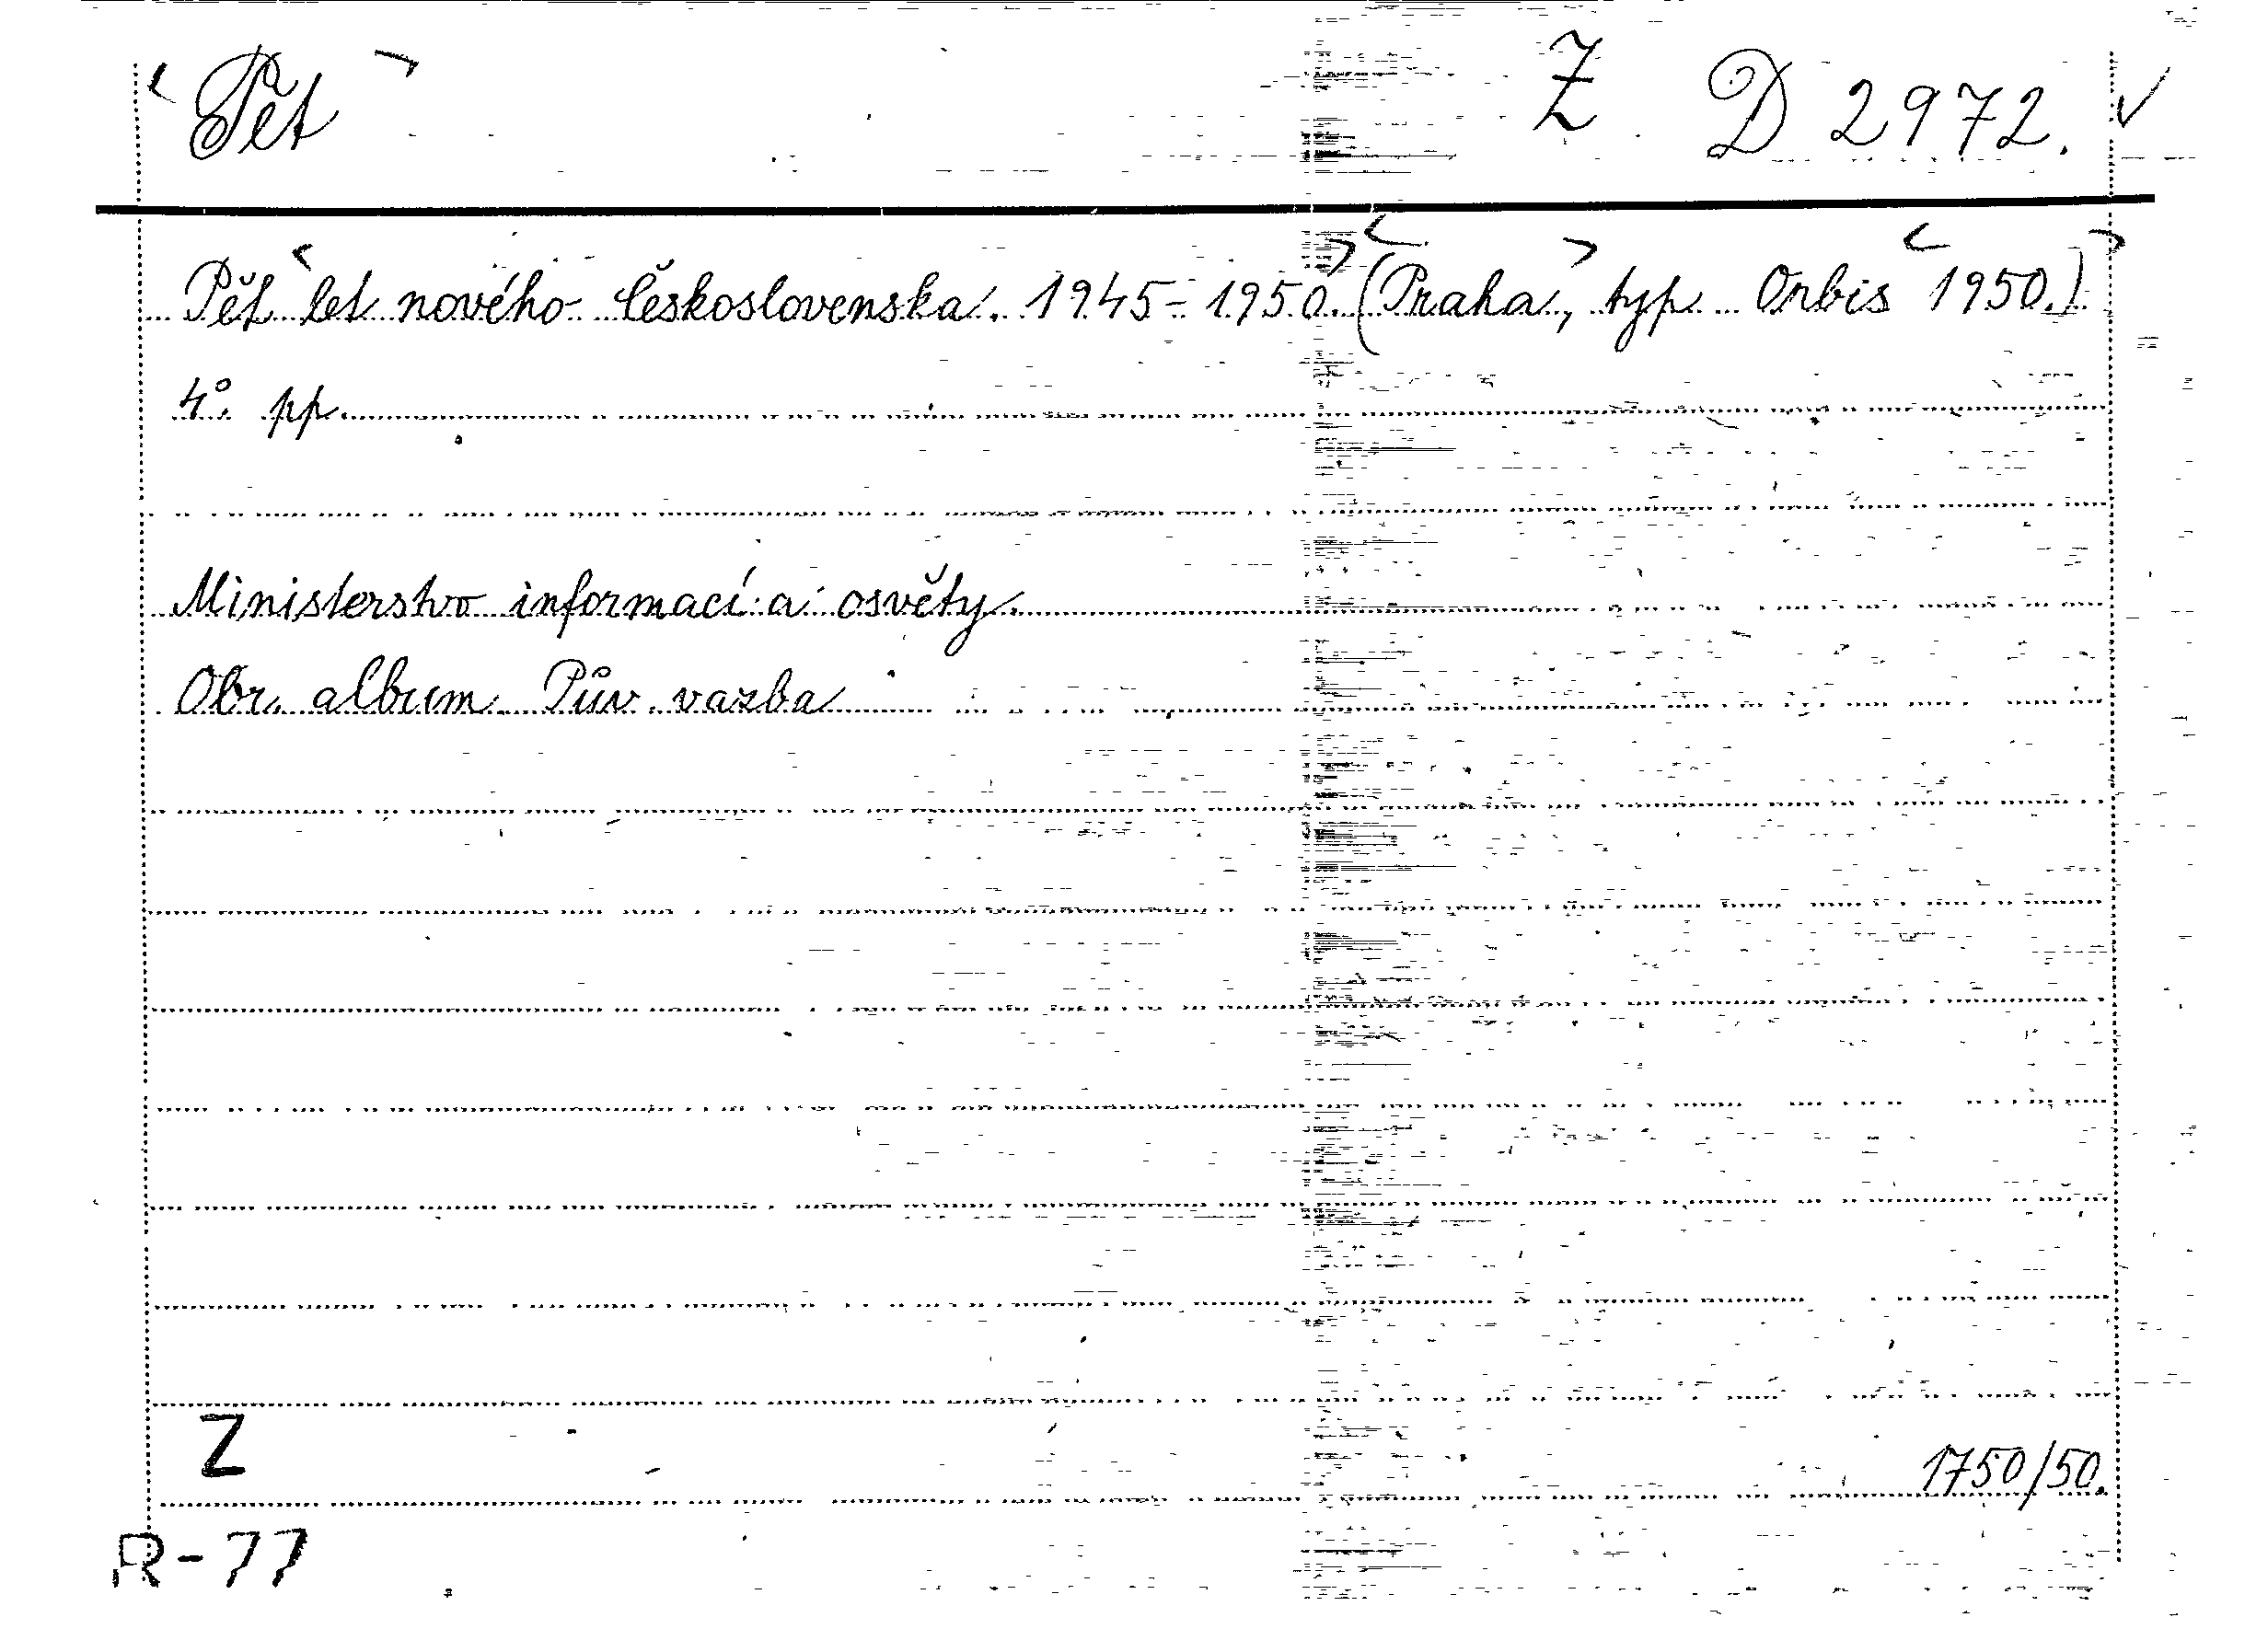 Pět Z D 2972.
Pět let nového Československa. 1945-1950. (Praha, typ. Orbis 1950.)
4°. pp.
Ministerstvo informací a osvěty.
Obr. album. Pův. vazba
Z
1750/50.
R-77